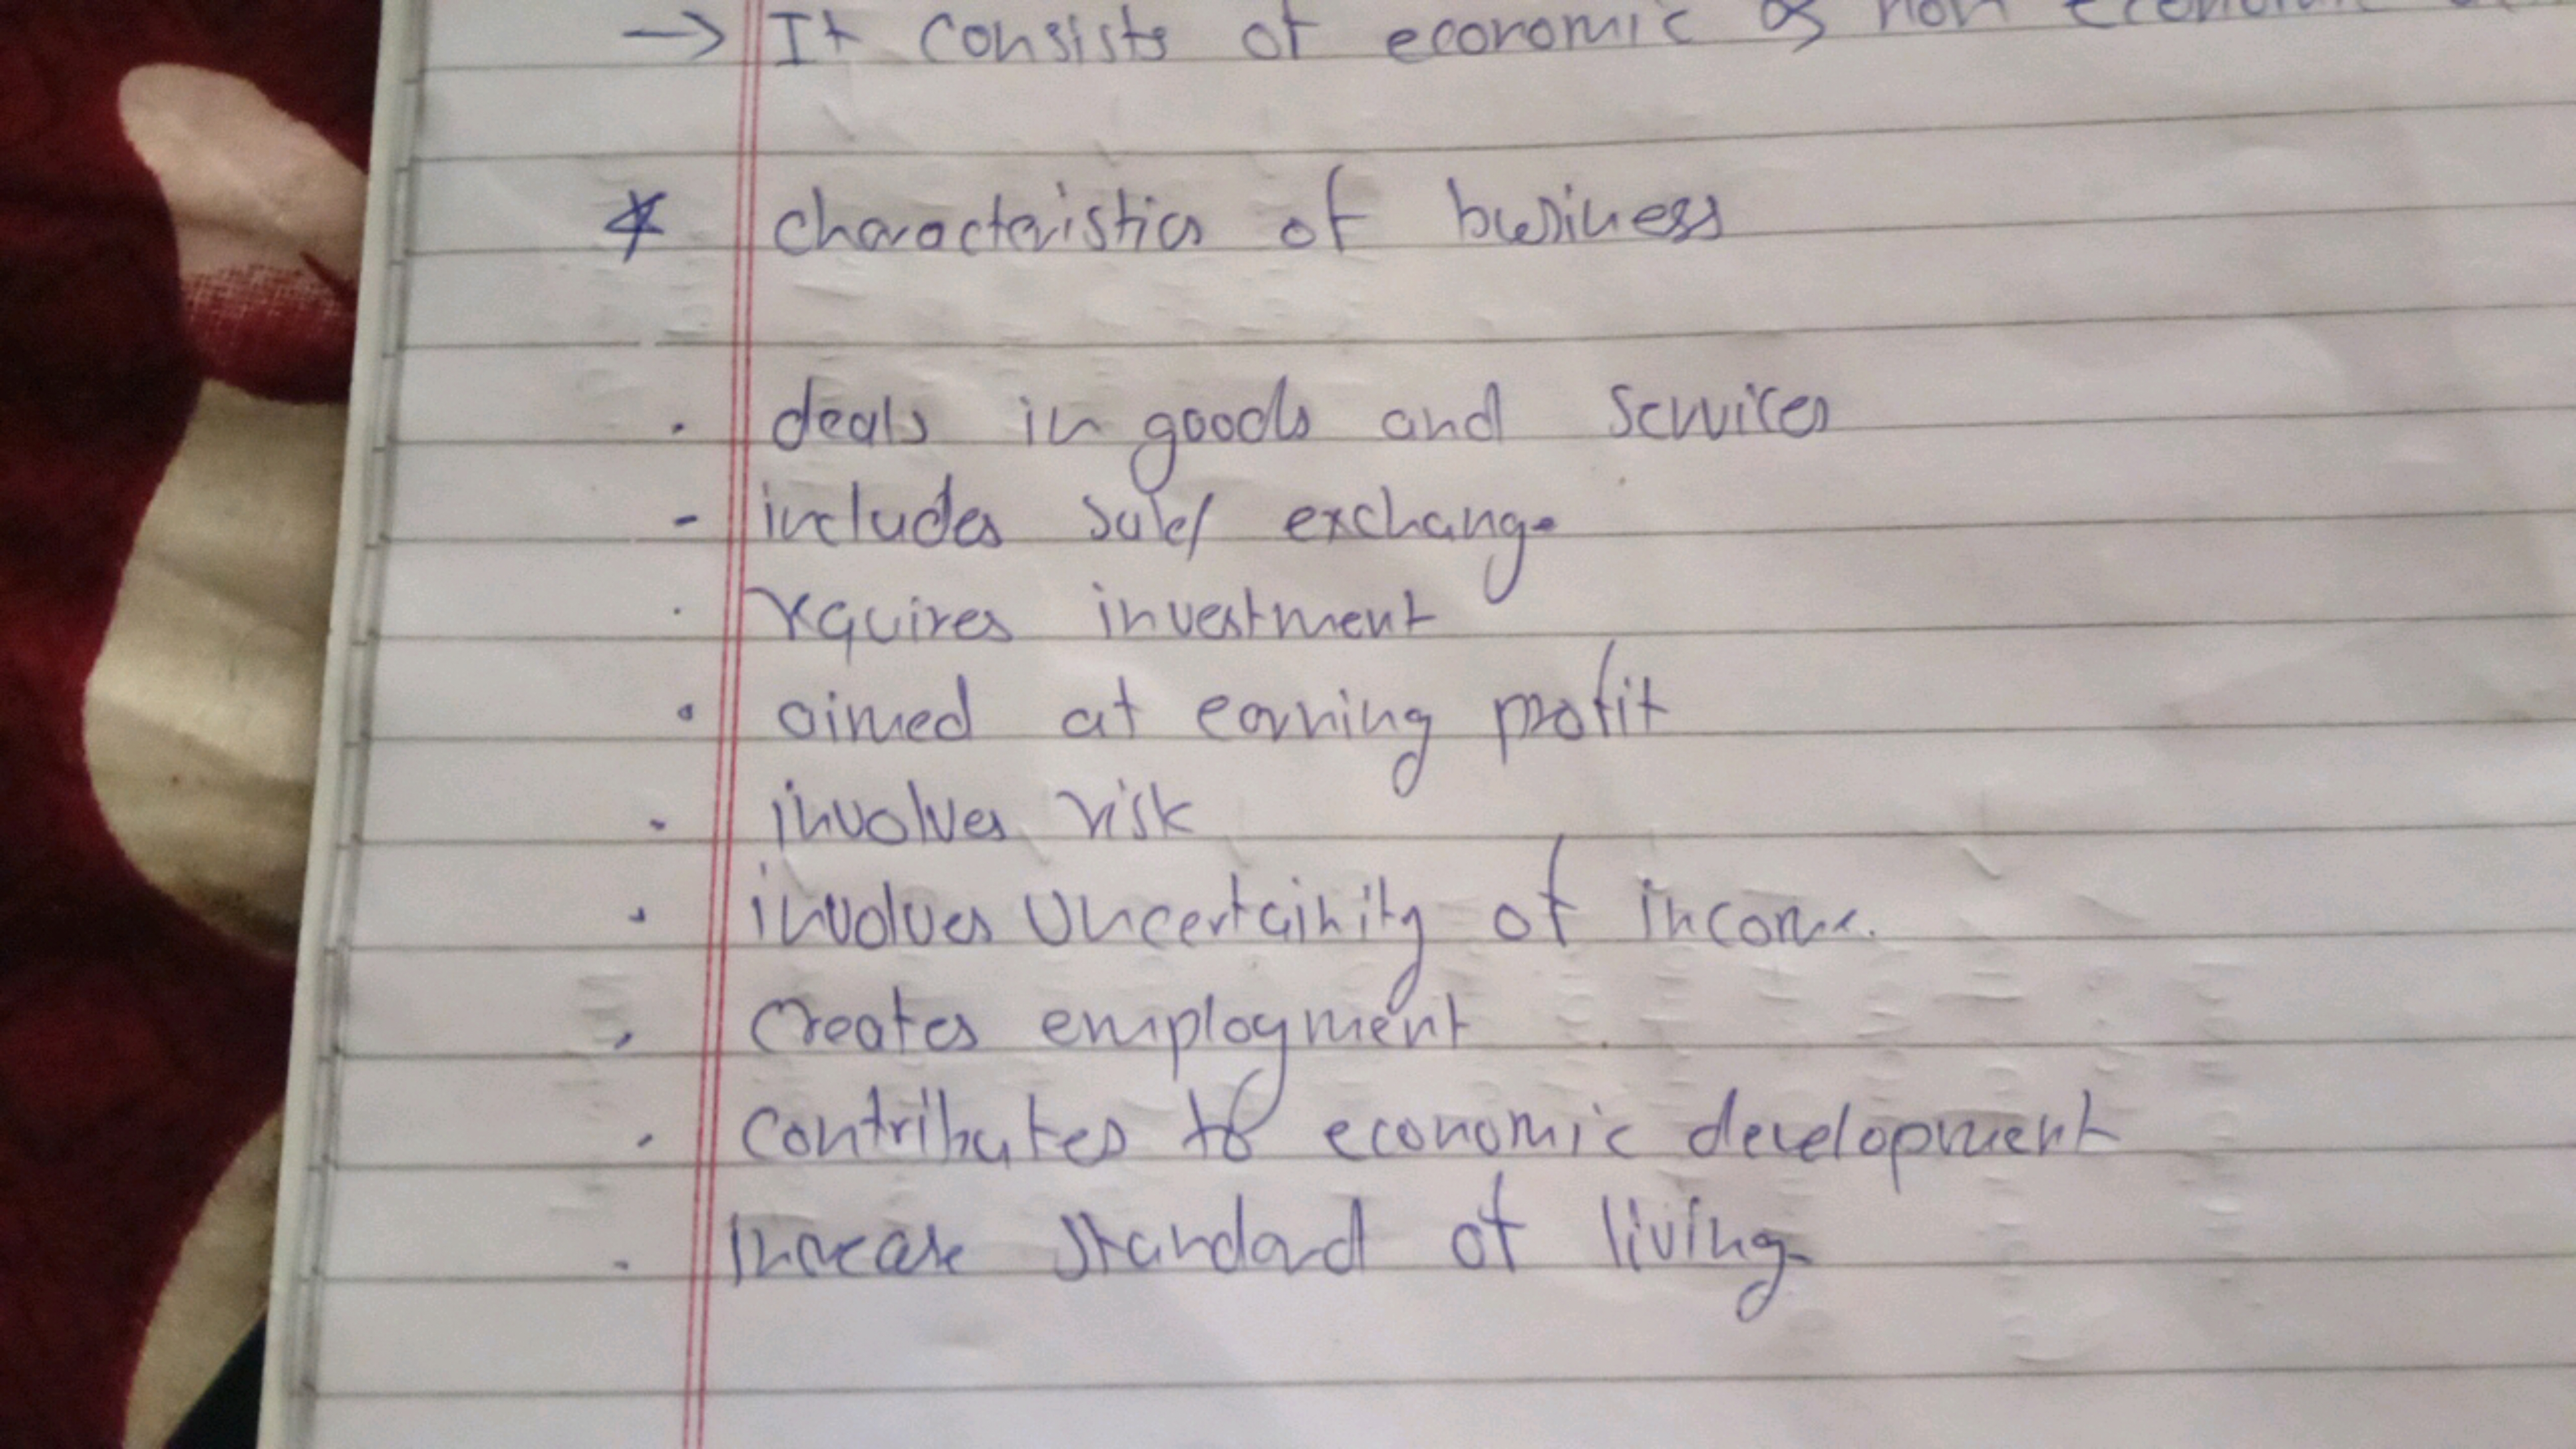 → It consists of economic & non economic
* characteristics of business
. deals in goods and services
- includes sale/ exchange
. requires investment
. aimed at earning profit
. involves risk
. involves Uncertainity of income.
. creates employment
. contributes to economic development
. Increase standard of living